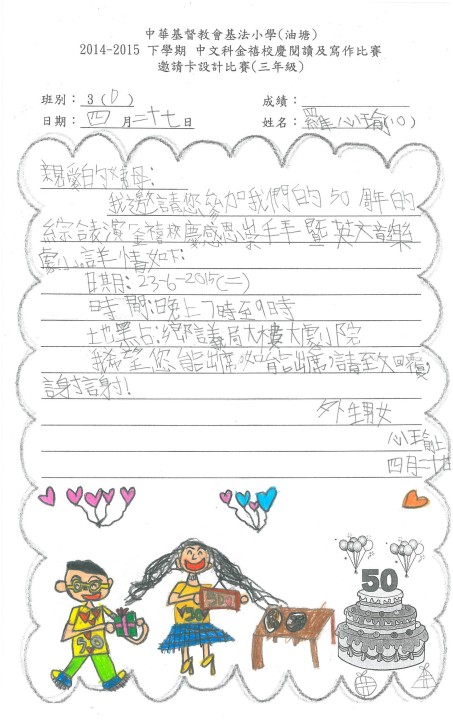 中華基督教會基法小學(油塘)
2014-2015 下學期 中文科金禧校慶閱讀及寫作比賽
邀請卡設計比賽(三年級)
班別: 3 (D) 成績:
日期: 四 月二十七日 姓名: 羅心瑜(10)
親愛的姨母:
我邀請您參加我們的50周年的
綜合表演金禧校慶感恩崇拜暨英文音樂
劇。詳情如下:
日期:23-6-2015(二)
時間:晚上7時至9時
地點:大樓大劇院
我希望您能出席,如能出席,請致回覆,
謝謝!
外甥女
心瑜上
四月二十七
50
50
50